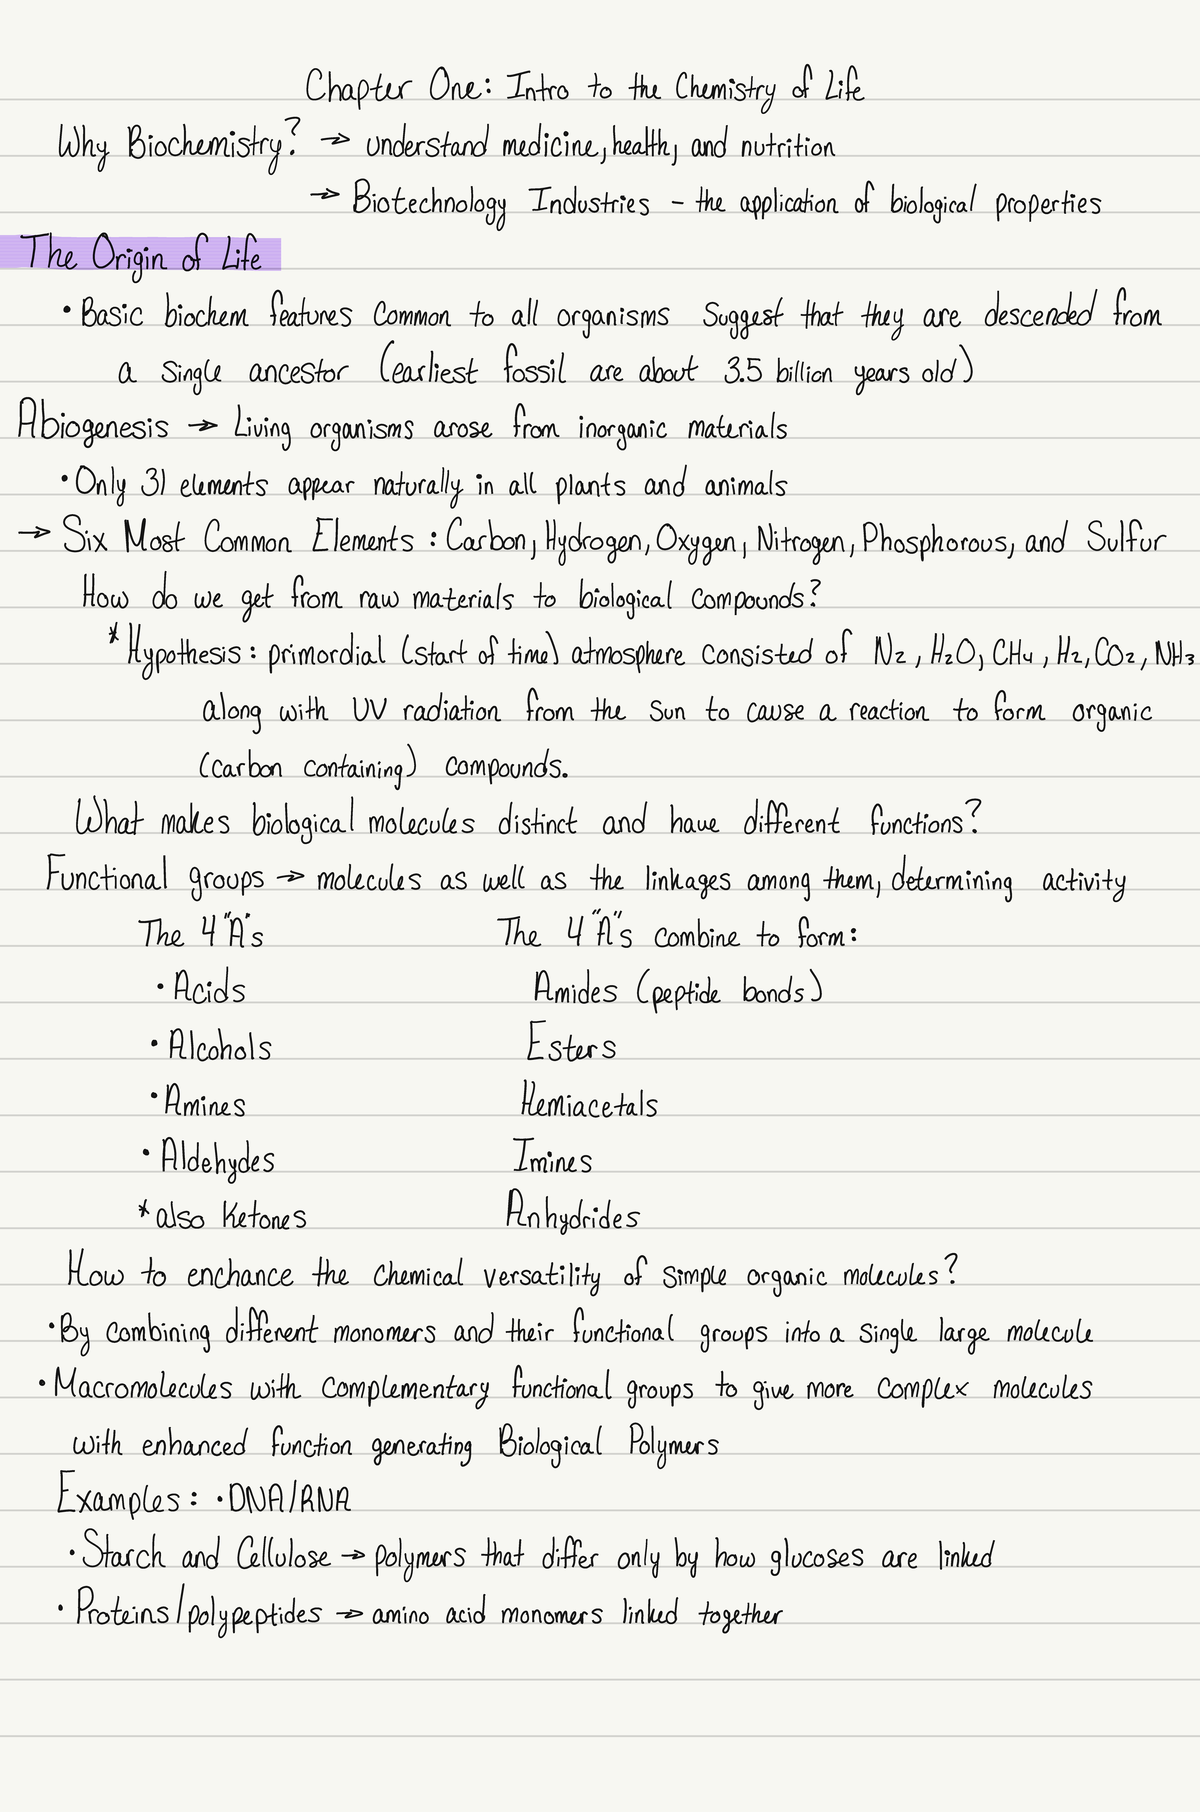 Chapter One: Intro to the Chemistry of Life
Why Biochemistry? → understand medicine, health, and nutrition
→ Biotechnology Industries - the application of biological properties
The Origin of Life
• Basic biochem features common to all organisms suggest that they are descended from
a single ancestor (earliest fossil are about 3.5 billion years old)
Abiogenesis → Living organisms arose from inorganic materials
• Only 31 elements appear naturally in all plants and animals
→ Six Most Common Elements: Carbon, Hydrogen, Oxygen, Nitrogen, Phosphorous, and Sulfur
How do we get from raw materials to biological compounds?
* Hypothesis: primordial (start of time) atmosphere consisted of N₂, H₂O, CH₄, H₂, CO₂, NH₃
along with UV radiation from the sun to cause a reaction to form organic
(carbon containing) compounds.
What makes biological molecules distinct and have different functions?
Functional groups → molecules as well as the linkages among them, determining activity
The 4 "A"s The 4 "A"s combine to form:
• Acids Amides (peptide bonds)
• Alcohols Esters
• Amines Hemiacetals
• Aldehydes Imines
* also Ketones Anhydrides
How to enchance the chemical versatility of simple organic molecules?
• By combining different monomers and their functional groups into a single large molecule
• Macromolecules with complementary functional groups to give more complex molecules
with enhanced function generating Biological Polymers
Examples: • DNA/RNA
• Starch and Cellulose → polymers that differ only by how glucoses are linked
• Proteins/polypeptides → amino acid monomers linked together